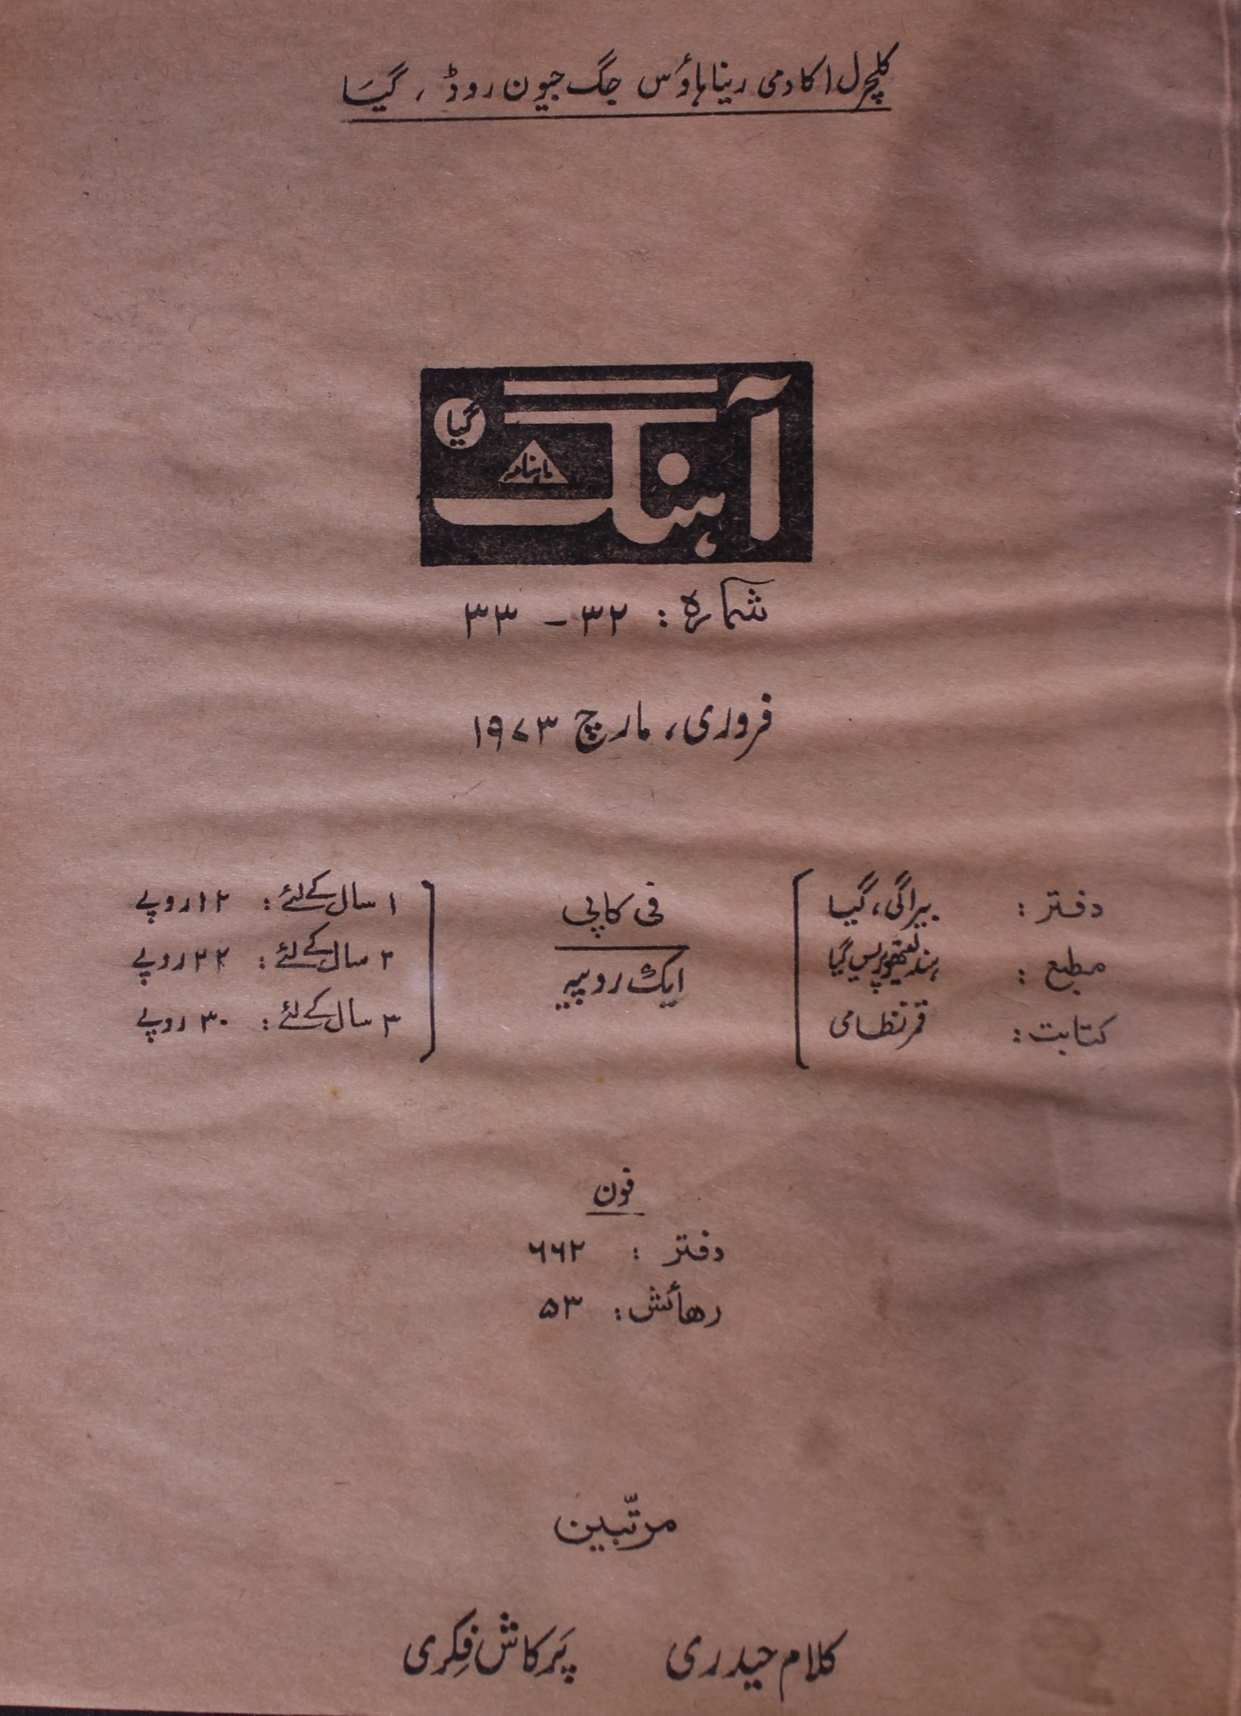 کلچرل اکادمی رینا ہاؤس جگ جیون روڈ، گیا
آہنگ
ماہنامہ
گیا
شمارہ: ۳۲ - ۳۳
فروری، مارچ ۱۹۷۳
دفتر: بیراگی، گیا
مطبع: ہند لیتھو پریس گیا
کتابت: قمر نظامی
فی کاپی
ایک روپیہ
۱ سال کے لئے: ۱۲ روپے
۲ سال کے لئے: ۲۲ روپے
۳ سال کے لئے: ۳۰ روپے
فون
دفتر: ۶۶۲
رھائش: ۵۳
مرتّبین
کلام حیدری پَرکاش فِکری